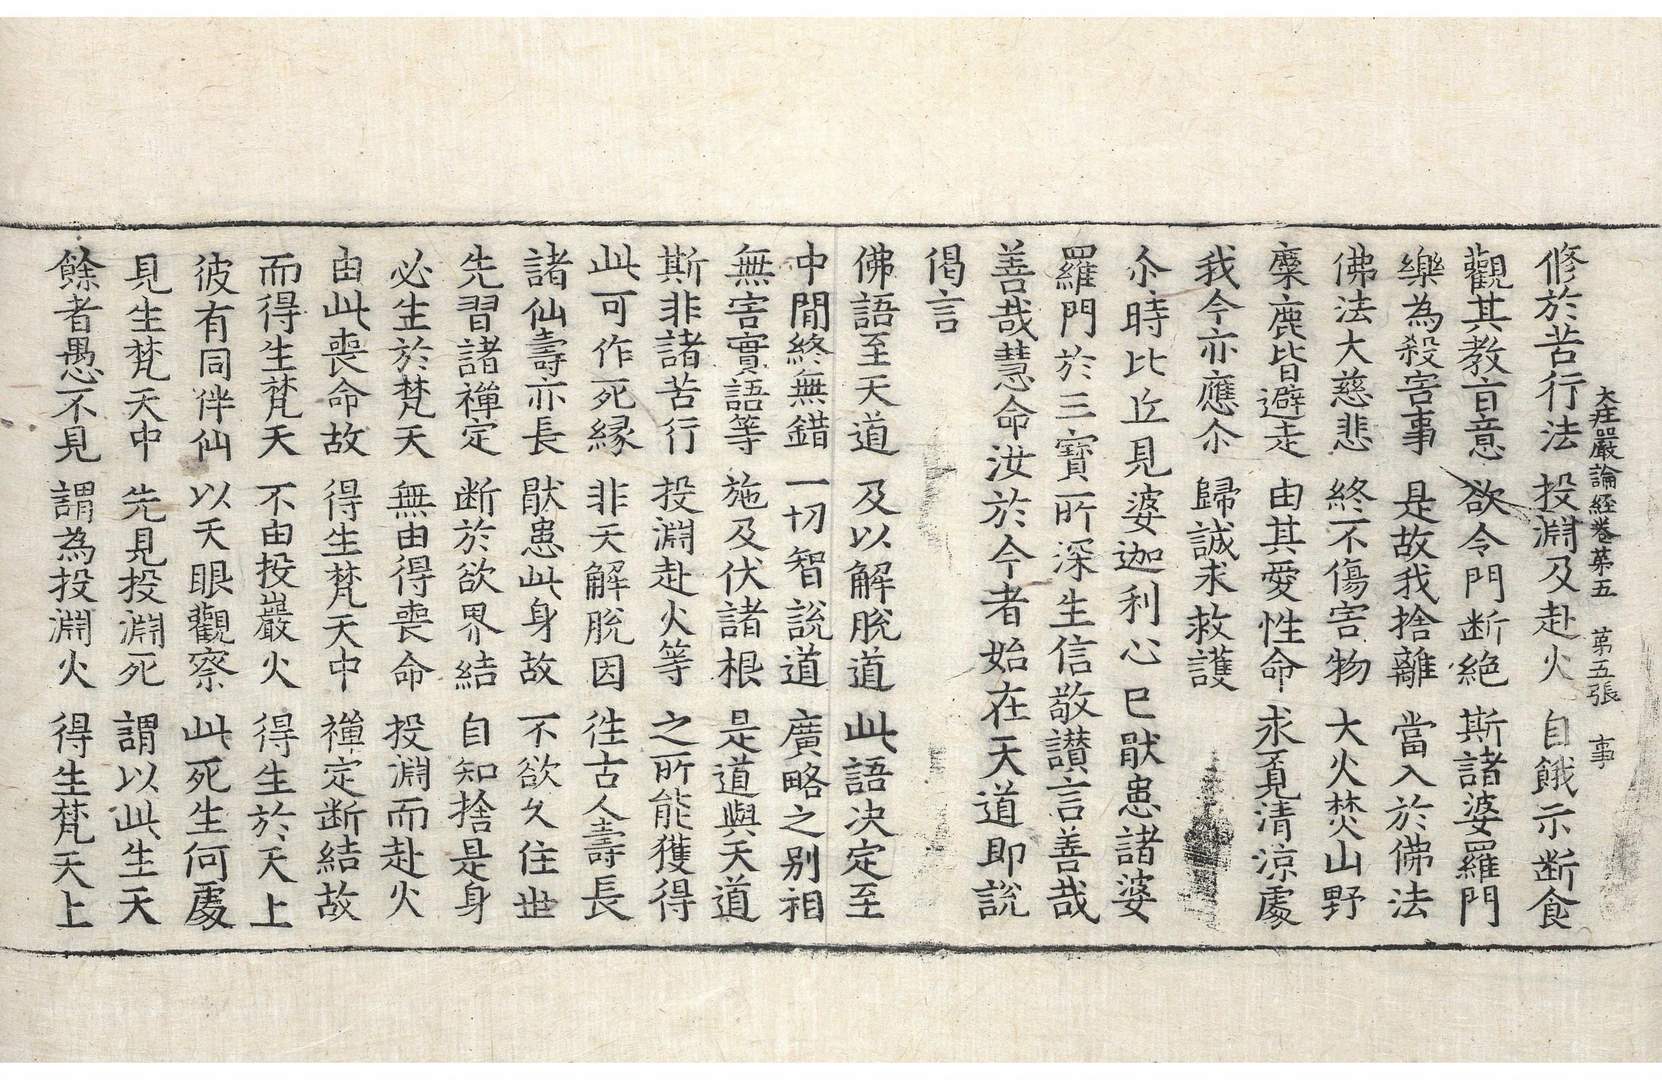 大庄嚴論經卷苐五　第五張　事
修於苦行法　投淵及赴火　自餓示断食
觀其教盲意　欲令門断絶　斯諸婆羅門
樂為殺害事　是故我捨離　當入於佛法
佛法大慈悲　終不傷害物　大火焚山野
麋鹿皆避走　由其愛性命　求覔清涼處
我今亦應尒　歸誠求救護
尒時比丘見婆迦利心已猒患諸婆
羅門於三寶所深生信敬讃言善哉
善哉慧命汝於今者始在天道即說
偈言
佛語至天道　及以解脫道　此語决定至
中閒終無錯　一切智說道　廣略之别相
無害實語等　施及伏諸根　是道與天道
斯非諸苦行　投淵赴火等　之所能獲得
此可作死縁　非天解脫因　往古人壽長
諸仙壽亦長　猒患此身故　不欲久住世
先習諸禪定　断於欲界結　自知捨是身
必生於梵天　無由得喪命　投淵而赴火
由此喪命故　得生梵天中　禪定断結故
而得生梵天　不由投巖火　得生於天上
彼有同伴仙　以天眼觀察　此死生何處
見生梵天中　先見投淵死　謂以此生天
餘者愚不見　謂為投淵火　得生梵天上